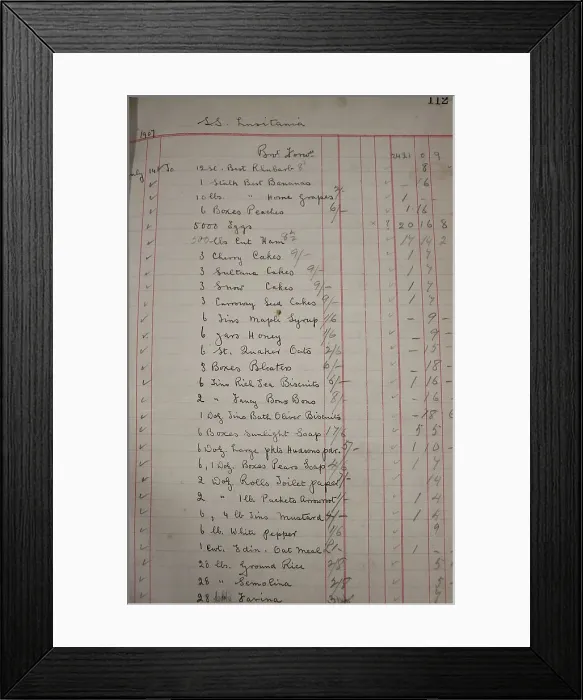 112
S.S. Lusitania
1907
Brt Forwd 2421 0 9
July 14 To 12 St. Best Rhubarb 8
1 Stalk Best Bananas - 16
10 lbs. " Home Grapes 2/- 1 -
6 Boxes Peaches 6/- 1 16
5000 Eggs 20 16 8
lbs Cut Ham 8½ 14 14 2
3 Cherry Cakes 9/- 1 7
3 Sultana Cakes 9/- 1 7
3 Snow Cakes 9/- 1 7
3 Carroway Seed Cakes 9/- 1 7
6 Tins Maple Syrup 1/6 - 9 -
6 Jars Honey 1/6 - 9 -
6 St. Quaker Oats 2/6 - 15 -
3 Boxes Bloaters 6/- - 18 -
6 Tins Rich Tea Biscuits 6/- 1 16 -
2 " Fancy Bons Bons 8/- - 16 -
1 Doz Tins Bath Oliver Biscuits - 18 6
6 Boxes Sunlight Soap 17/6 5 5
6 Doz Large pkts Hudsons 5/- 1 10 -
6, 1 Doz. Boxes Pears Soap 4/6 1 7
2 Doz Rolls Toilet paper 7/- 14
2 " 1 lb Packets Arrowroot 1/- 1 4
6, 4 lb Tins Mustard 4/- 1 4
6 lb. White Pepper 1/6 9
1 Cwt. Edin. Oat Meal 1 -
28 lb. Ground Rice 5
28 " Semolina
28 Farina